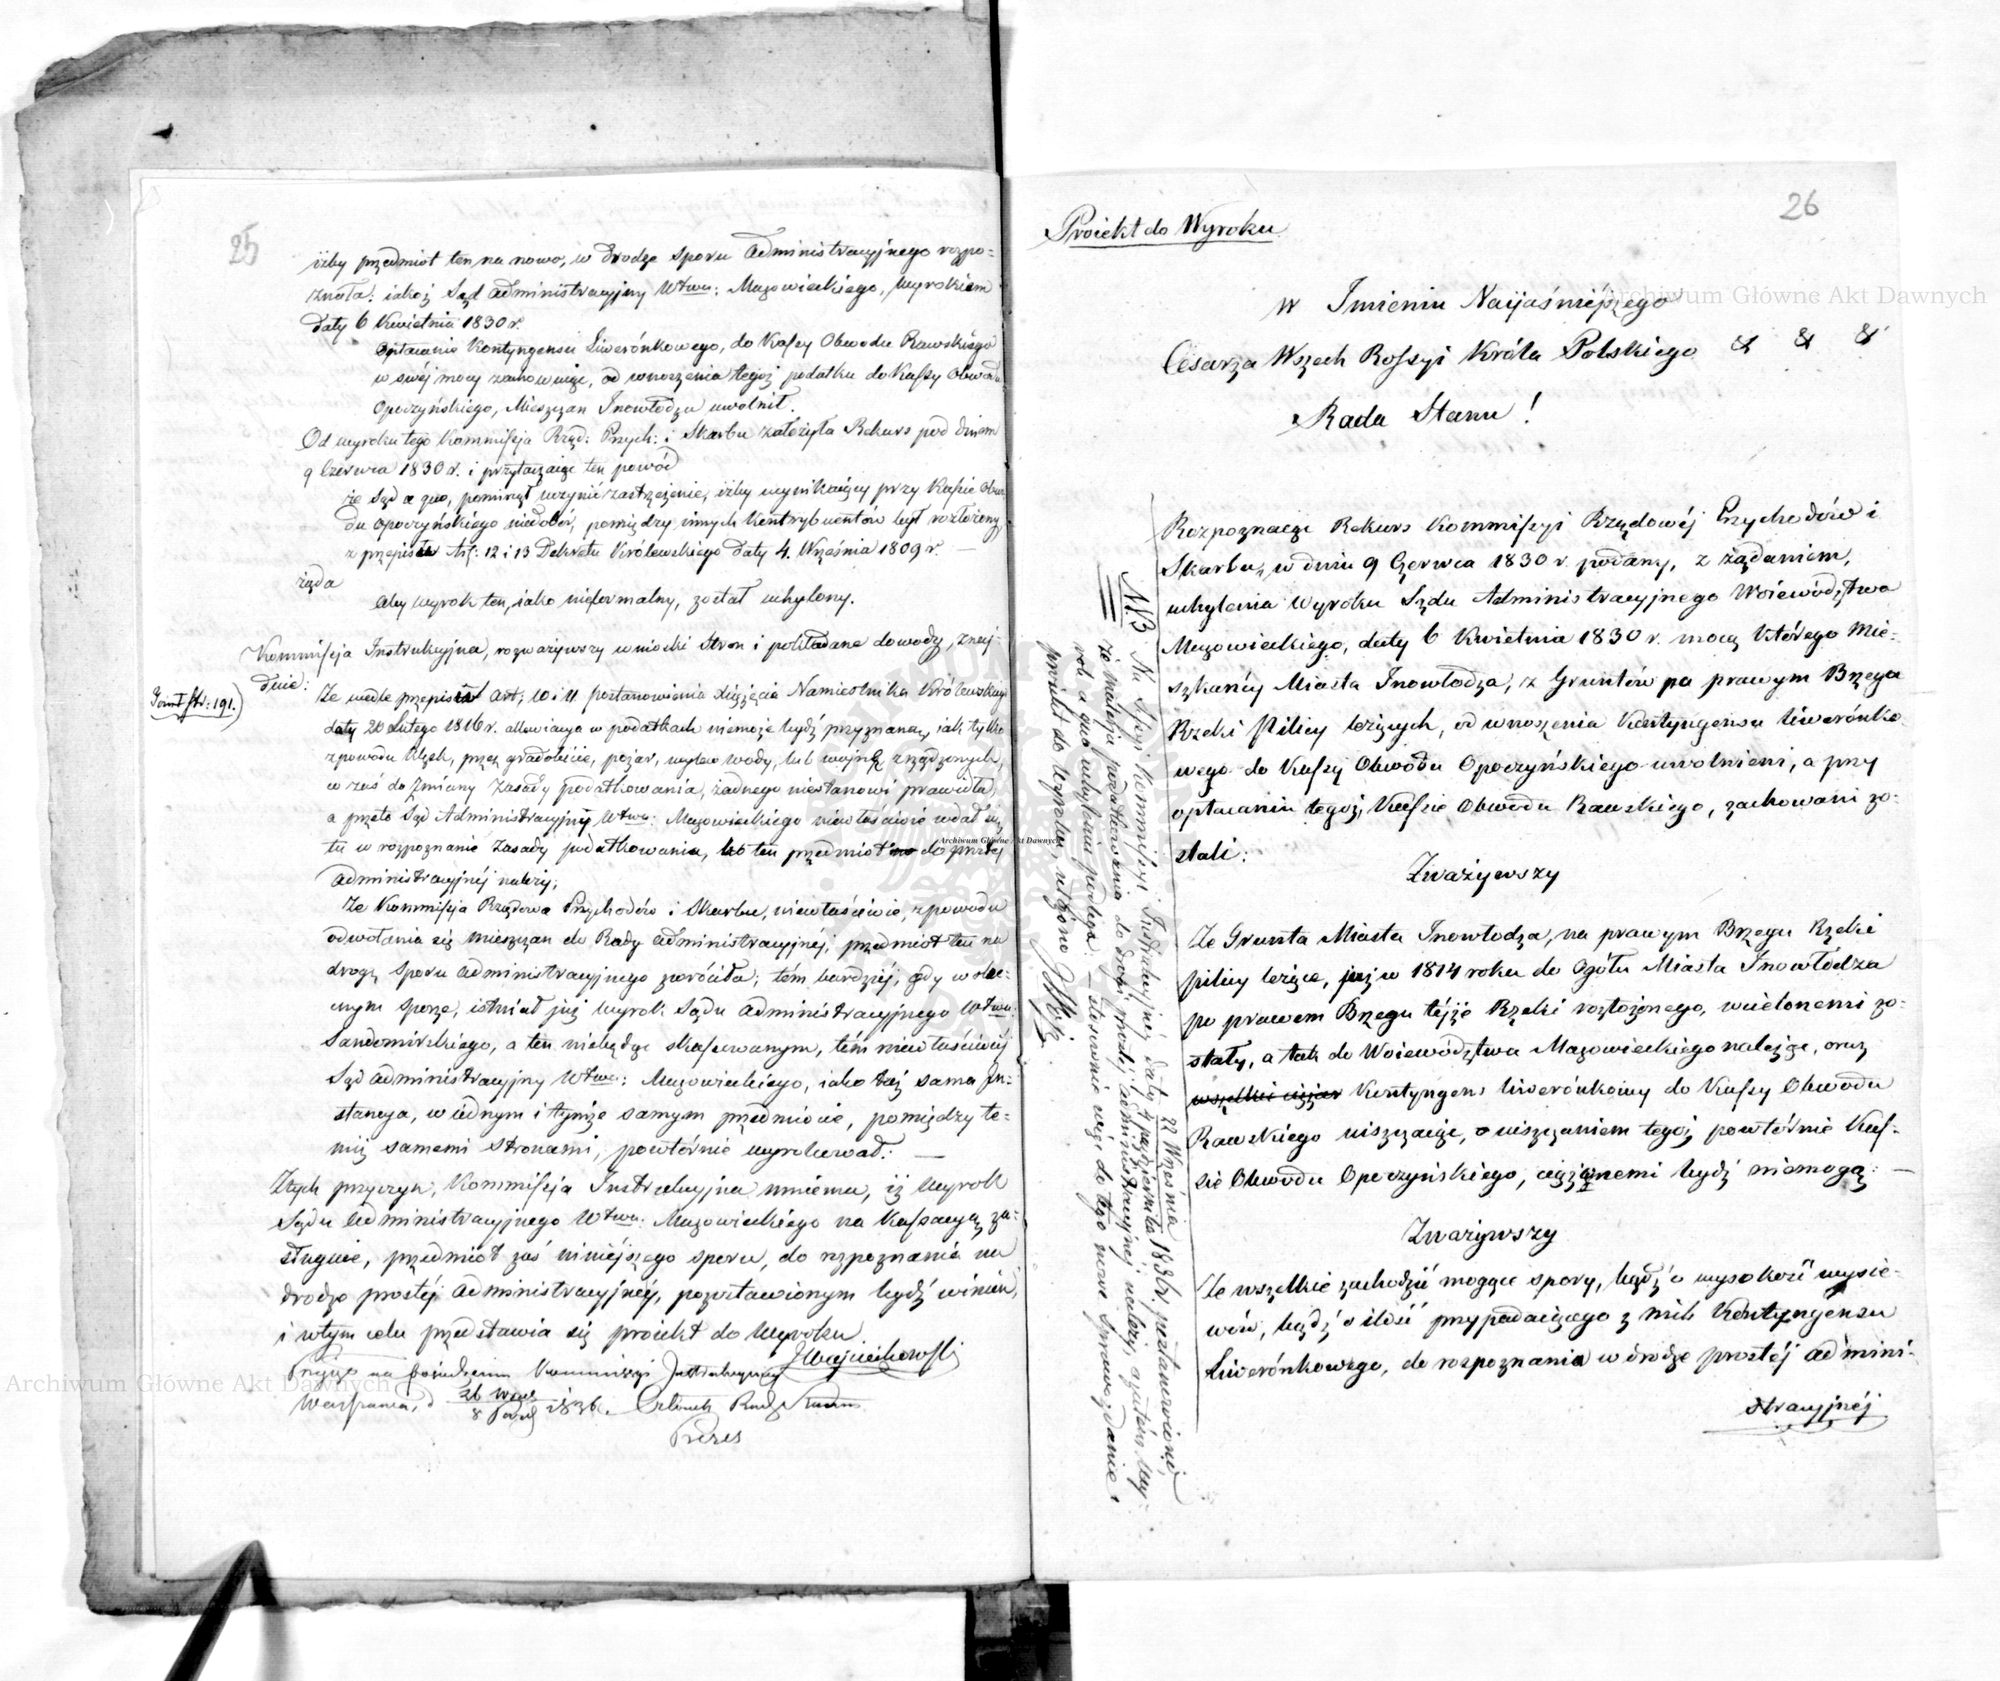 25
iżby przedmiot ten na nowo, w drodze sporu Administracyjnego rozpo-
znała: iakoż Sąd Administracyjny Wtwa: Mazowieckiego, wyrokiem
daty 6 Kwietnia 1830 r.
opłacanie Kontyngensu Liwerónkowego, do Kassy Obwodu Rawskiego
w swéj mocy zachowując, od wnoszenia tegoż podatku do Kassy Obwodu
Opoczyńskiego, Mieszczan Inowłodza uwolnił.
Od wyroku tego Kommissja Rząd: Przych: i Skarbu założyła Rekurs pod dniem
9 Czerwca 1830 r. i przytaczaiąc ten powód
że Sąd a quo, pominął uczynić zastrzeżenie, iżby wynikaiący przy Kassie Obwo-
du Opoczyńskiego niedobór, pomiędzy innych Kontrybuentów był rozłożony
z przepisu Art: 12 i 13 Dekretu Królewskiego daty 4. Września 1809 r. —
żąda
Aby wyrok ten, iako nieformalny, został uchylony.
Kommissja Instrukcyjna, rozważywszy wnioski Stron i pokładane dowody, znaj-
duie:
Tom I str: 191.)
Że wedle przepisów art: 10 i 11 postanowienia Xiążęcia Namiestnika Królewskiego
daty 20 Lutego 1816 r. allewiacya w podatkach niemoże bydź przyznaną, jak tylko
z powodu klęsk, przez gradobicie, pożar, wylew wody, lub wojnę zrządzonych,
w zaś do zmiany zasady podatkowania, żadnego niestanowi prawidła,
a przeto Sąd Administracyjny Wtwa: Mazowieckiego niewłaściwie wdał się
tu w rozpoznanie zasady podatkowania, bo ten przedmiot do prostéj
Administracyjnéj należy;
Że Kommissja Rządowa Przychodów i Skarbu, niewłaściwie, z powodu
odwołania się Mieszczan do Rady Administracyjnéj, przedmiot ten na
drogę Sporu Administracyjnego zwróciła; tém bardziéj, gdy w obec-
nym sporze, istniał już wyrok Sądu Administracyjnego Wtwa:
Sandomirskiego, a ten niebędąc skassowanym, tém niewłaściwiéj
Sąd Administracyjny Wtwa: Mazowieckiego, iako taż sama In-
stancya, w iednym i tymże samym przedmiocie, pomiędzy te-
miż samemi Stronami, powtórnie wyrokował: —
Z tych przyczyn, Kommissja Instrukcyjna mniema, iż wyrok
Sądu Administracyjnego Wtwa: Mazowieckiego na Kassacyą za-
sługuie, przedmiot zaś niniejszego sporu, do rozpoznania na
drodze prostéj Administracyjnéj, pozostawionym bydź winien,
i w tym celu przedstawia się proiekt do Wyroku.
JWojciechowski
Przyięto na posiedzeniu Kommissyi Instrukcyjnej
Warszawa, d 26 Wrześ / 8 Paźd 1836. Członek Rady Stanu
Prezes
26
Proiekt do Wyroku
w Imieniu Nayjaśniejszego
Cesarza Wszech Rossyi Króla Polskiego & & &
Rada Stanu!
Rozpoznaiąc Rekurs Kommissyi Rządowéj Przychodów i
Skarbu, w dniu 9 Czerwca 1830 r. podany, z żądaniem,
uchylenia Wyroku Sądu Administracyjnego Woiewództwa
Mazowieckiego, daty 6 Kwietnia 1830 r. mocą którego Mie-
szkańcy Miasta Inowłodza, z Gruntów po prawym Brzegu
Rzeki Pilicy leżących, od wnoszenia Kontyngensu Liwerónko-
wego do Kassy Obwodu Opoczyńskiego uwolnieni, a przy
opłacaniu tegoż, Kassie Obwodu Rawskiego, zachowani zo-
stali:
Zważywszy
Że Grunta Miasta Inowłodza, na prawym Brzegu Rzeki
Pilicy leżące, już w 1814 roku do Ogółu Miasta Inowłódza
po prawem Brzegu téjże Rzeki rozłożonego, wcielonemi zo-
stały, a tak do Woiewództwa Mazowieckiego należąc, oraz
wszelkie ciężar Kontyngens Liwerónkowy do Kassy Obwodu
Rawskiego uiszczaiąc, o uiszczaniem tegoż powtórnie Kas-
sie Obwodu Opoczyńskiego, ciążonemi bydź niemogą: —
Zważywszy
Że wszelkie zachodzić mogące spory, bądź o wysokość wysie-
wów, bądź o ilość przypadaiącego z nich Kontyngensu
Liwerónkowego, do rozpoznania w drodze prostéj Admini-
stracyjnéj
NB Na Sessyi Kommissyi Instrukcyjnéj daty 22 Września / 4 Października 1836 r. postanowiono,
że materja podatkowania do drogi prostéj Administracyjnéj należy, a zatém Wy-
rok a quo uchyleniu podlega: — stosownie więc do tego nowe Sprawozdanie i
proiekt do Wyroku, ułożono